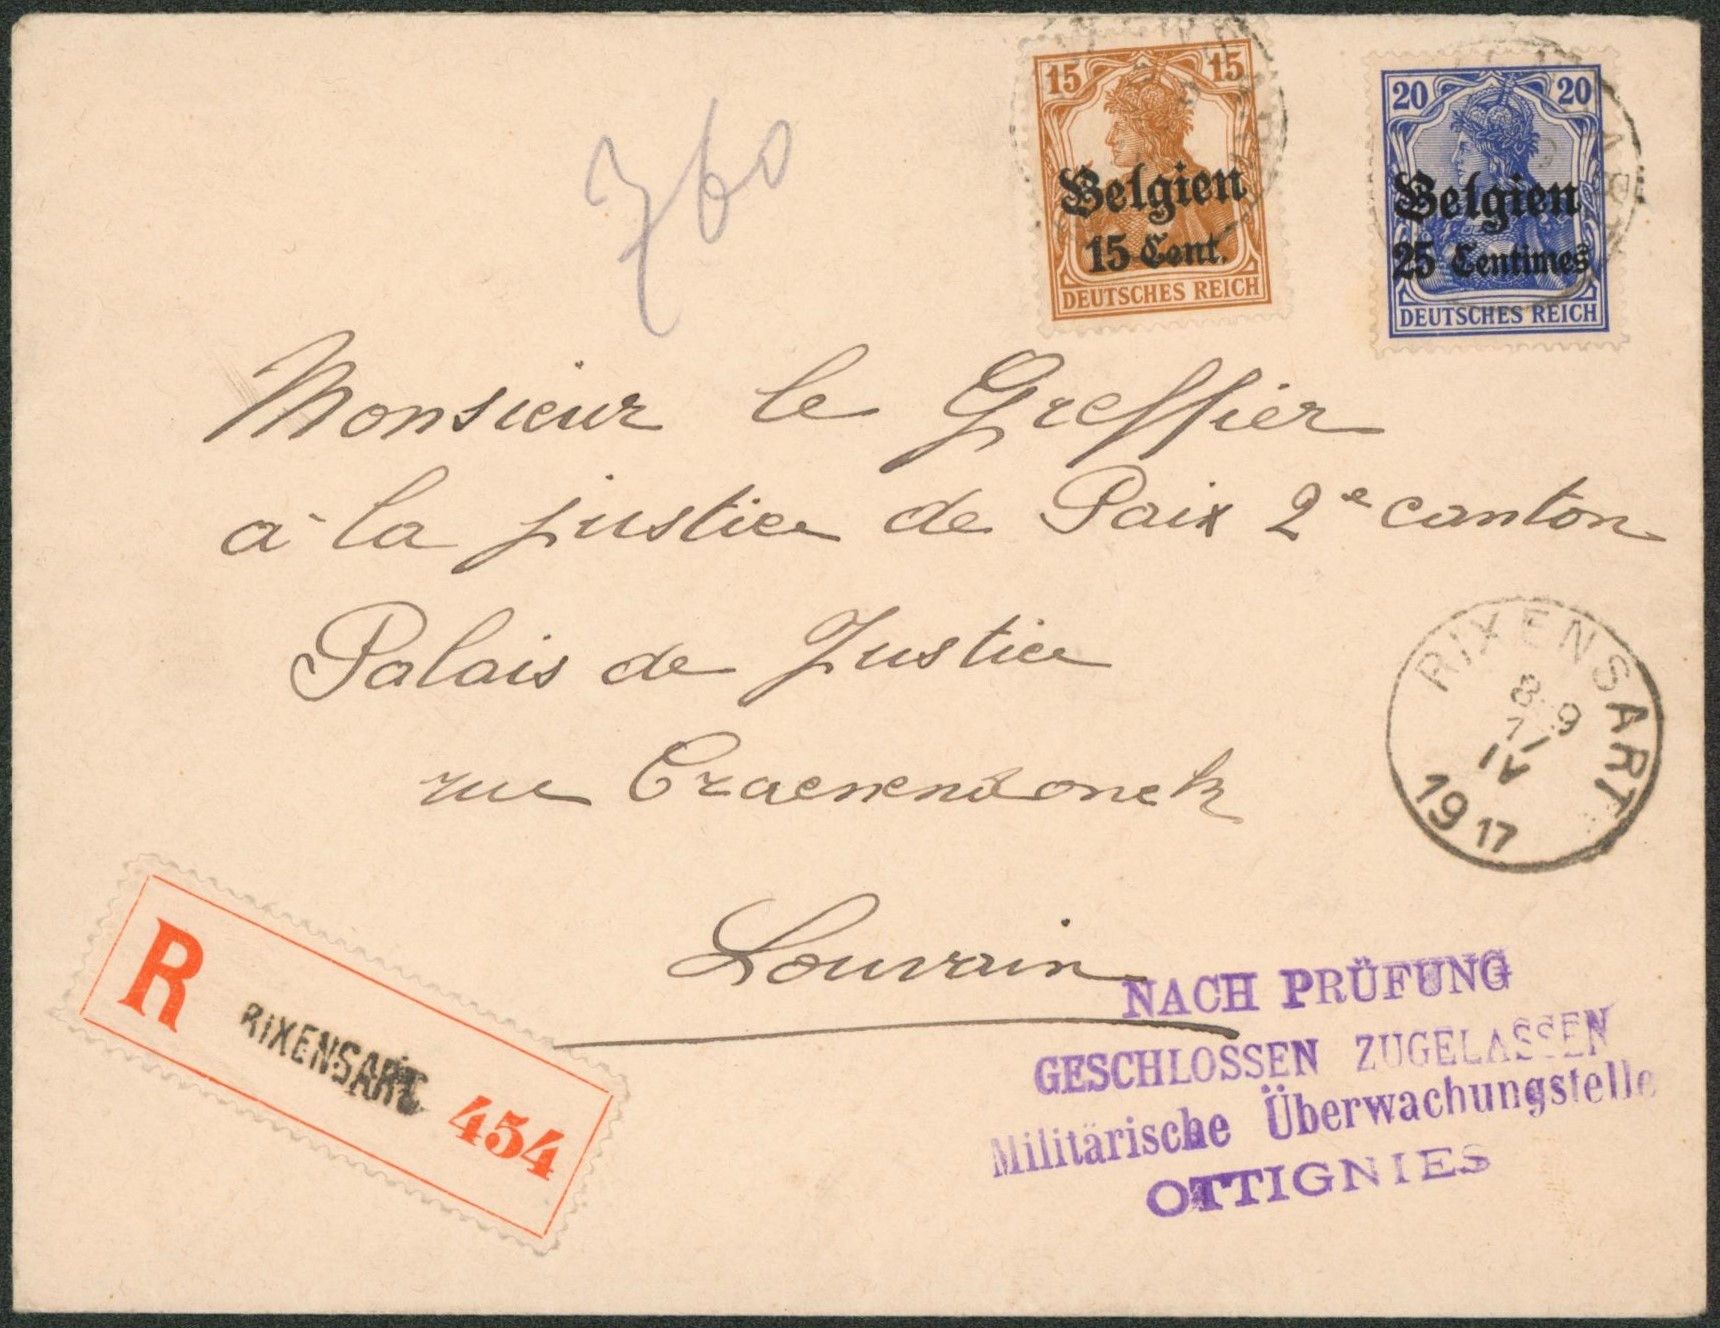 760
15 15
Belgien
15 Cent.
DEUTSCHES REICH
20 20
Belgien
25 Centimes
DEUTSCHES REICH
Monsieur le Greffier
à la justice de Paix 2e canton
Palais de Justice
rue Craenendonck
Louvain
RIXENSART
8-9
7
IV
1917
R RIXENSART 454
NACH PRÜFUNG
GESCHLOSSEN ZUGELASSEN
Militärische Überwachungstelle
OTTIGNIES